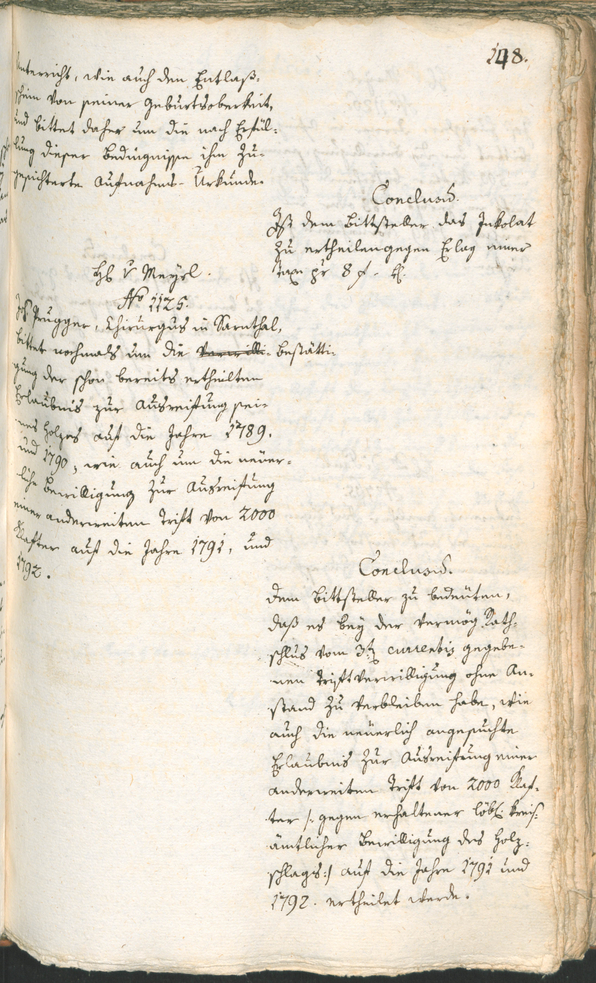 148.
unterricht, wie auch den Entlaß-
schein von seiner Geburtsoberkeit,
und bittet daher um die nach Erfül-
lung dieser Bedingnisse ihm zu-
gesicherte Aufnahms-Urkunde.
Conclusum.
Ist dem Bittsteller das Inkolat
zu ertheilen gegen Erlag einer
Tax pr 8 f.
H. v Meyrl.
No 1125.
Jos Prugger, Chirurgus in Sarnthal,
bittet nochmals um die Bestätti-
gung der schon bereits ertheilten
Erlaubnis zur Ausreifung sei-
nes Holzes auf die Jahre 1789.
und 1790, wie auch um die neuer-
liche Bewilligung zur Ausreifung
einer anderweiten Trift von 2000
Klafter auf die Jahre 1791, und
1792.
Conclusum.
Dem Bittsteller zu bedeuten,
daß es bey der vermög Rath-
schlus vom 3t currentis gegebe-
nen Triftverwilligung ohne An-
stand zu verbleiben habe, wie
auch die neuerlich angesuchte
Erlaubnis zur Ausreifung einer
anderweiten Trift von 2000 Klaf-
ter /: gegen erhaltener löbl. kreis-
ämtlicher Bewilligung des Holz-
schlags :/ auf die Jahre 1791 und
1792. ertheilet werde.